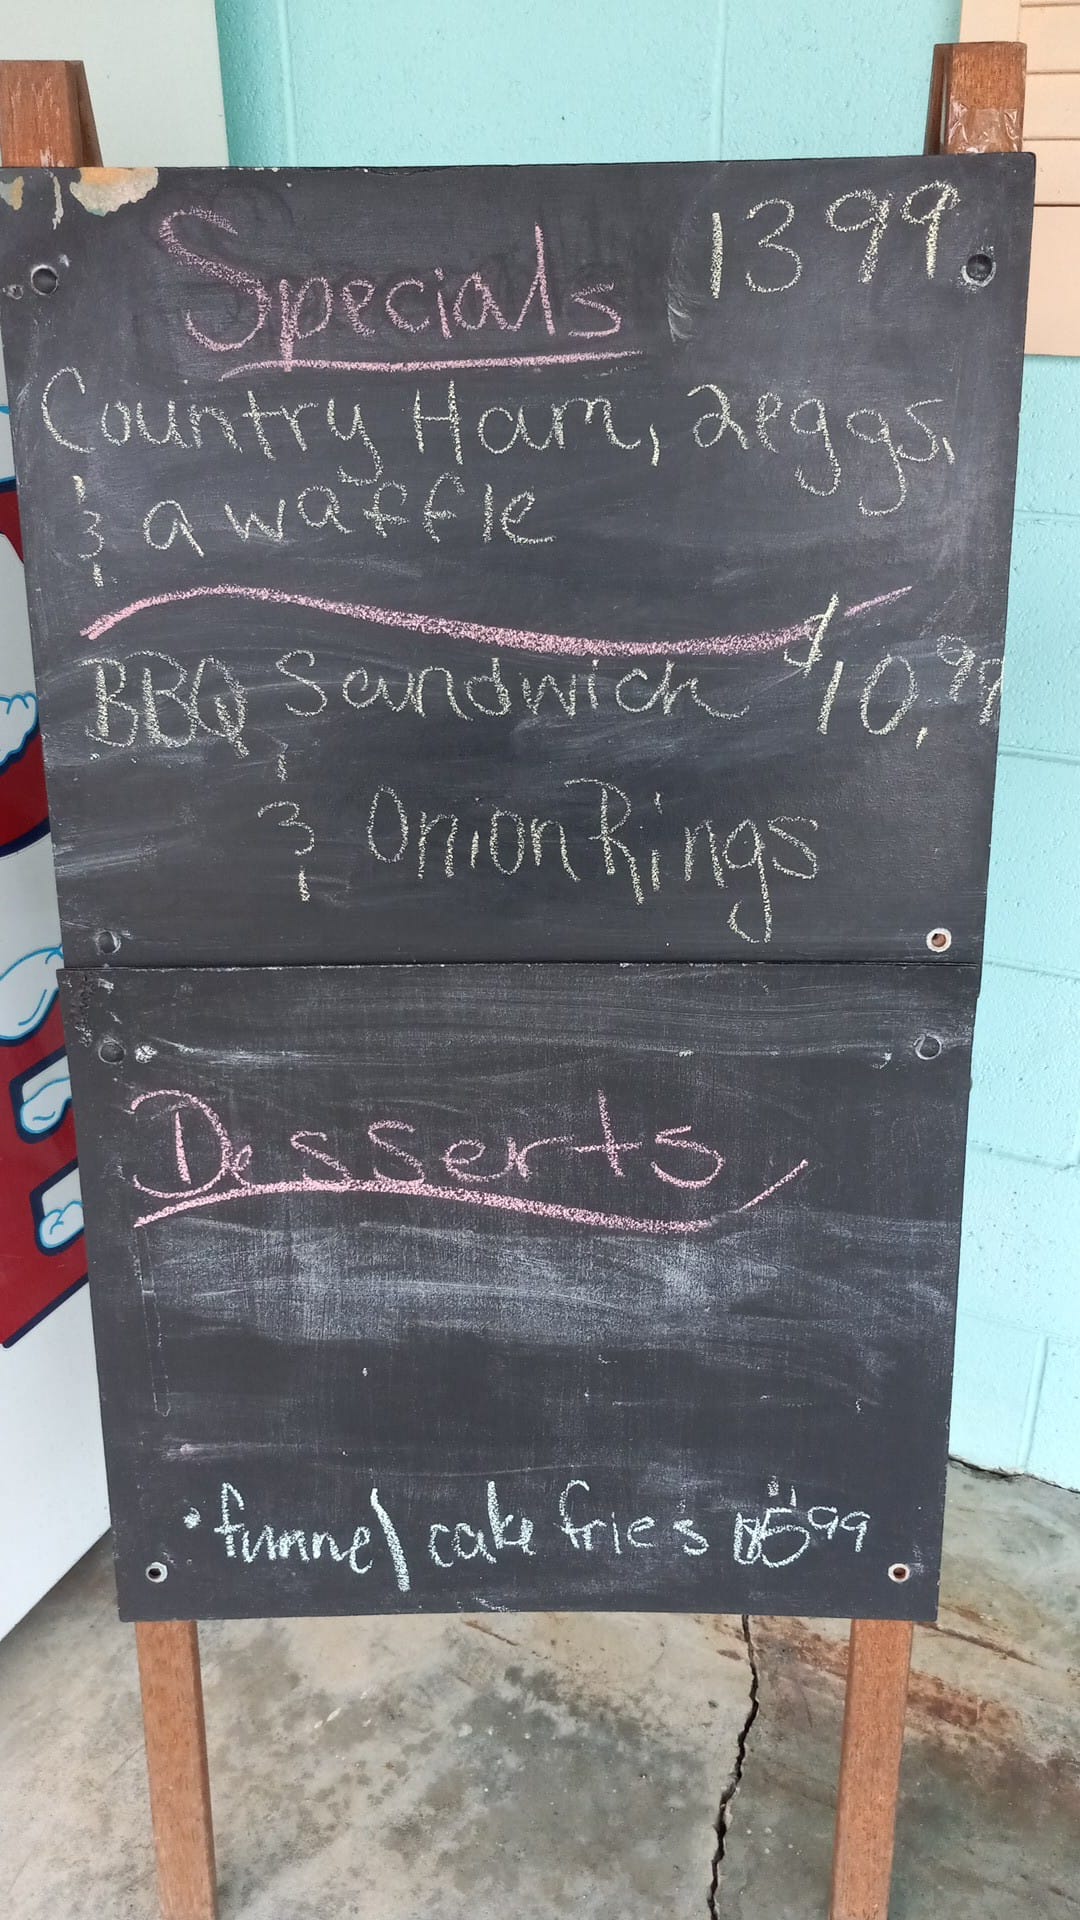 Specials 1399
Country Ham, 2eggs,
& a waffle
BBQ Sandwich $10.99
& Onion Rings
Desserts
• funnel cake fries $5 99